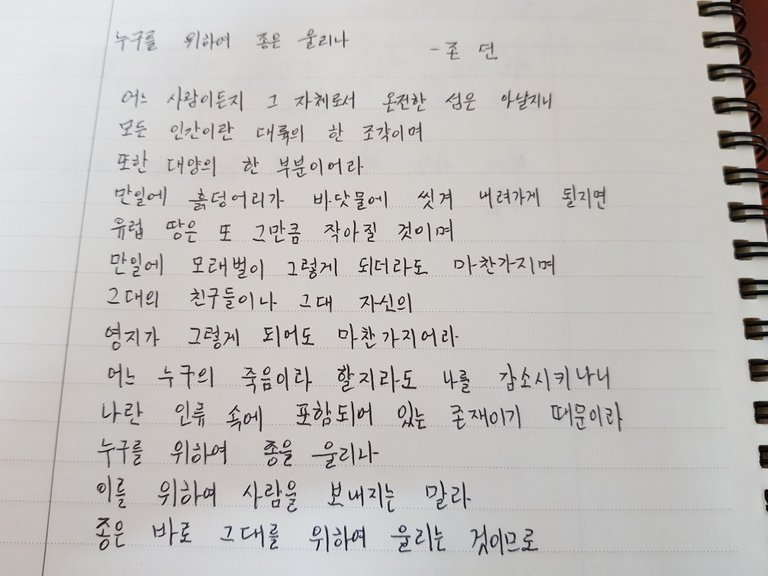 누구를 위하여 종은 울리나 - 존 던
어느 사람이든지 그 자체로서 온전한 섬은 아닐지니
모든 인간이란 대륙의 한 조각이며
또한 대양의 한 부분이어라
만일에 흙덩어리가 바닷물에 씻겨 내려가게 될지면
유럽 땅은 또 그만큼 작아질 것이며
만일에 모래벌이 그렇게 되더라도 마찬가지며
그대의 친구들이나 그대 자신의
영지가 그렇게 되어도 마찬가지어라
어느 누구의 죽음이라 할지라도 나를 감소시키나니
나란 인류 속에 포함되어 있는 존재이기 때문이라
누구를 위하여 종을 울리나
이를 위하여 사람을 보내지는 말라
종은 바로 그대를 위하여 울리는 것이므로